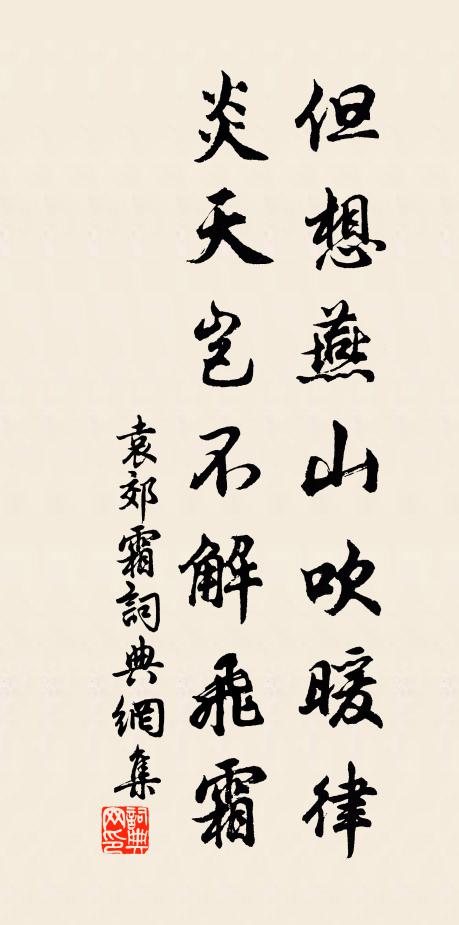 但想燕山吹暖律
炎天岂不解飛霜
袁郊霜詞典網集
詞典網印